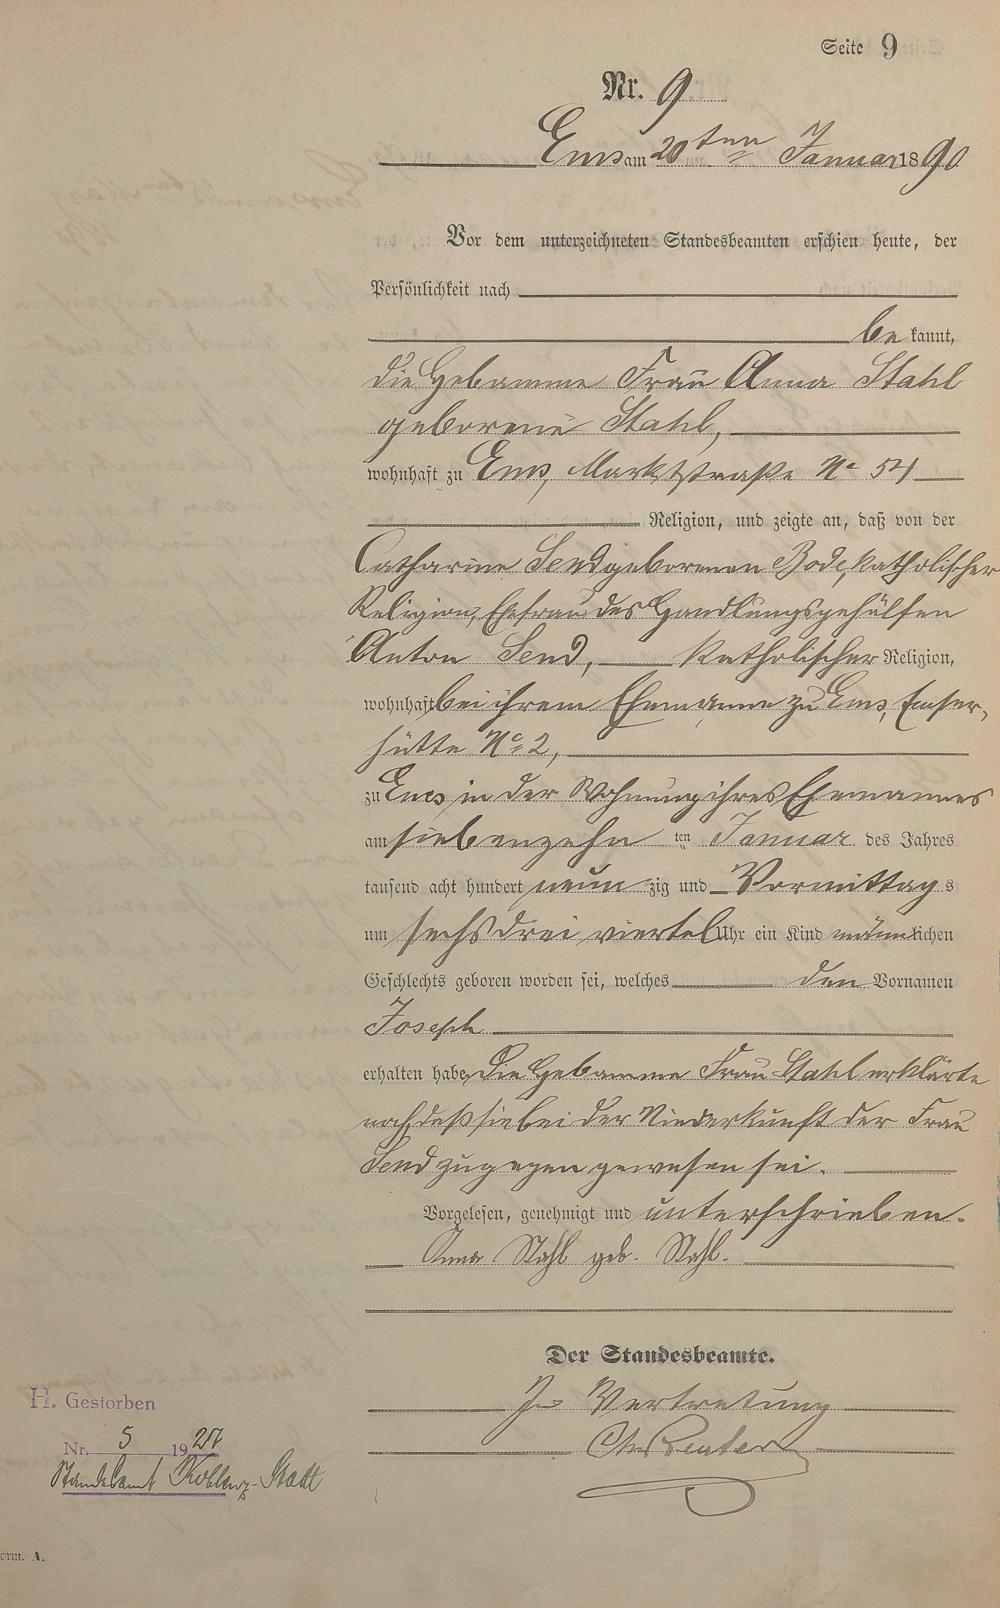 Seite 9
Nr. 9
Ems am 20ten Januar 1890
Vor dem unterzeichneten Standesbeamten erschien heute, der
Persönlichkeit nach
be kannt,
die Hebamme Frau Anna Stahl
geborene Stahl,
wohnhaft zu Ems, Marktstraße No 54
Religion, und zeigte an, daß von der
Catharine Send geborenen Bode, katholischer
Religion, Ehefrau des Handlungsgehülfen
Anton Send, katholischer Religion,
wohnhaft bei ihrem Ehemanne zu Ems, Emser,
hütte No 2,
zu Ems in der Wohnung ihres Ehemannes
am siebenzehn ten Januar des Jahres
tausend acht hundert neun zig und Vormittag s
um sechs drei viertel Uhr ein Kind männlichen
Geschlechts geboren worden sei, welches den Vornamen
Joseph
erhalten habe, Die Hebamme Frau Stahl erklärte
noch, daß sie bei der Niederkunft der Frau
Send zugegen gewesen sei.
Vorgelesen, genehmigt und unterschrieben.
Anna Stahl geb. Stahl.
Der Standesbeamte.
In Vertretung
H. Gestorben
Nr. 5 19
Standesamt Koblenz-Stadt
orm. A.